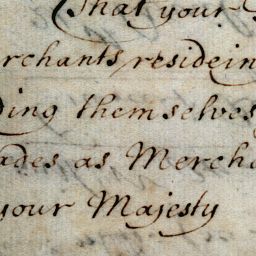 That your
rchants resideing
ding themselves
ades as Mercha
your Majesty